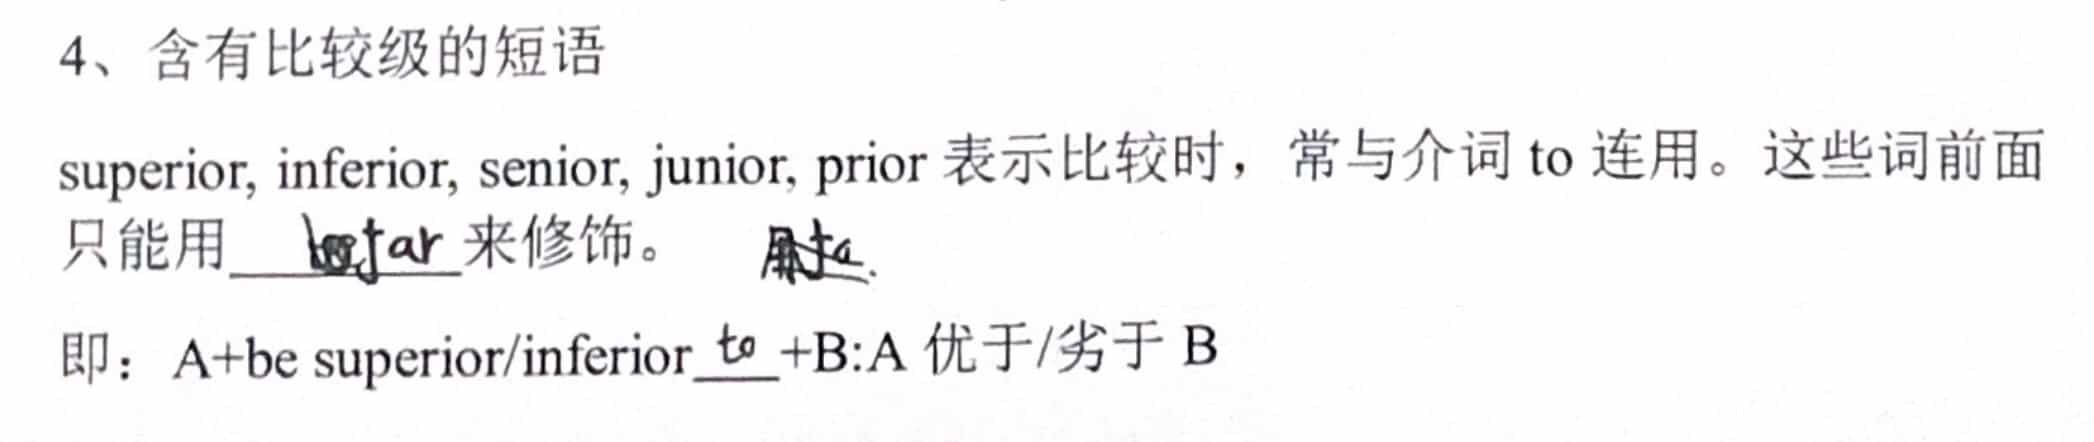 4、含有比较级的短语
superior, inferior, senior, junior, prior 表示比较时，常与介词 to 连用。这些词前面
只能用 far 来修饰。
即：A+be superior/inferior to +B:A 优于/劣于 B